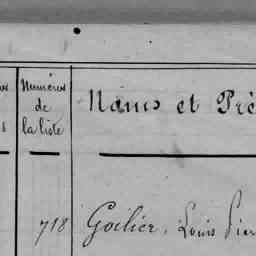 Numéros
de
la liste
Noms et Pré
718 Goilier, Louis Pier